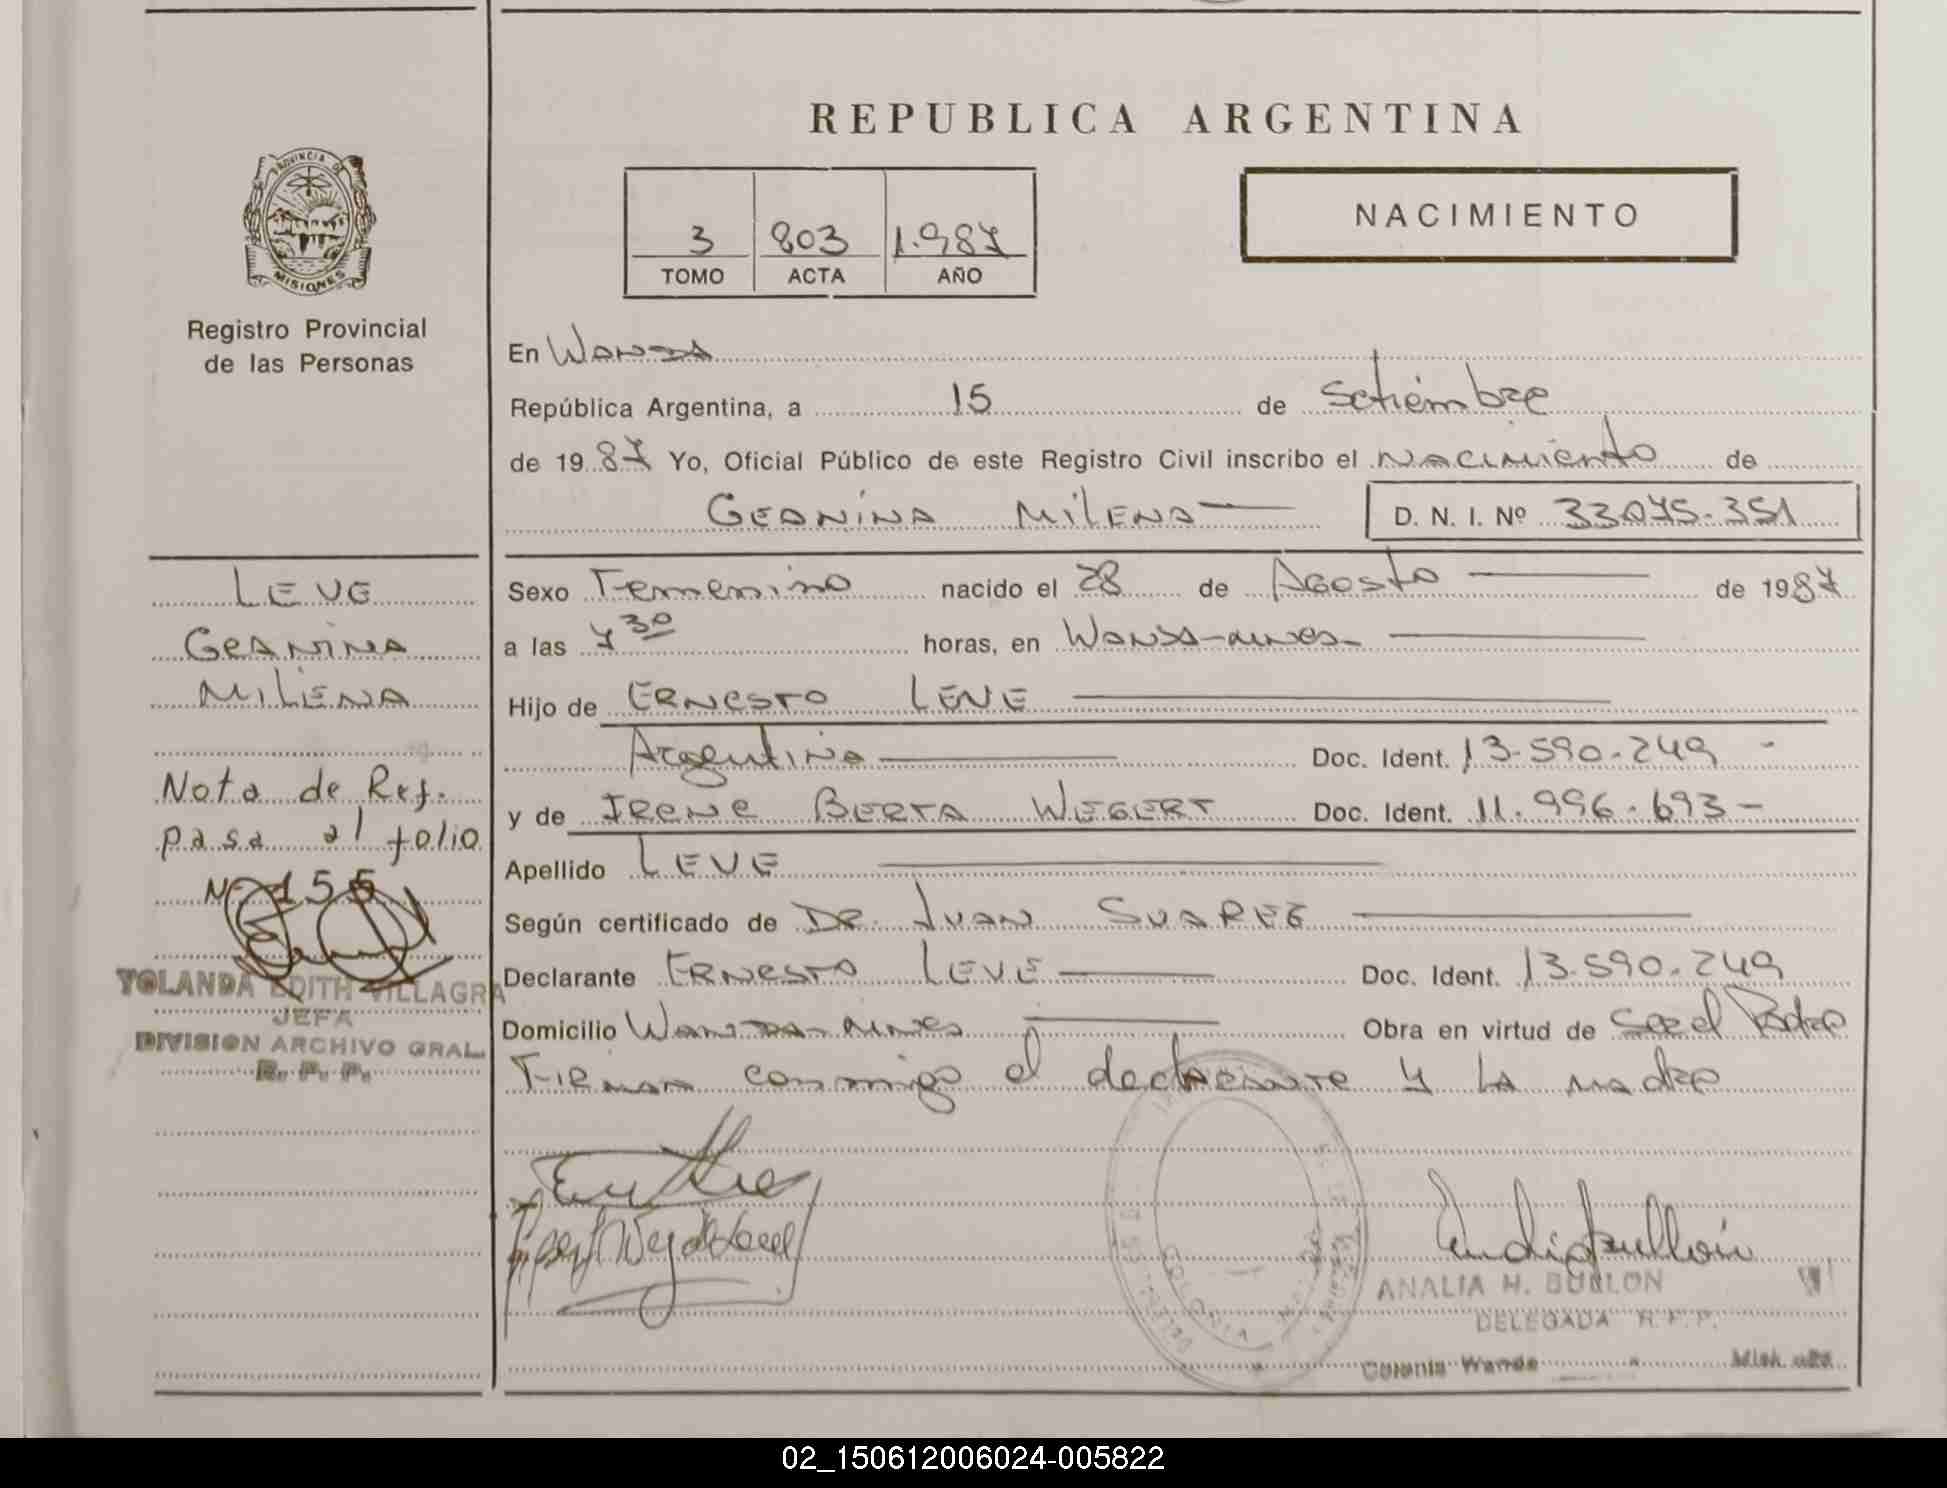 REPUBLICA ARGENTINA
PROVINCIA DE
MISIONES
Registro Provincial
de las Personas
3 803 1.987
TOMO ACTA AÑO
NACIMIENTO
En WANDA
República Argentina, a 15 de Setiembre
de 1987 Yo, Oficial Público de este Registro Civil inscribo el NACIMIENTO de
GEANINA MILENA D. N. I. Nº 33.075.351
LEVE
GEANINA
MILENA
Nota de Ref.
pasa al folio
Nº 155
YOLANDA EDITH VILLAGRA
JEFA
DIVISION ARCHIVO GRAL.
R. P. P.
Sexo Femenino nacido el 28 de Agosto de 1987
a las 7 30 horas, en WANDA-Mnes-
Hijo de ERNESTO LEVE
Argentina Doc. Ident. 13.590.249 -
y de IRENE BERTA WEGERT Doc. Ident. 11.996.693-
Apellido LEVE
Según certificado de DR. JUAN SUAREZ
Declarante ERNESTO LEVE Doc. Ident. 13.590.249
Domicilio WANDA-Mnes Obra en virtud de Ser el Padre
Firman conmigo el declarante y la madre
COLONIA
ANALIA H. BULLON
DELEGADA R.P.P.
Colonia Wanda
02_150612006024-005822